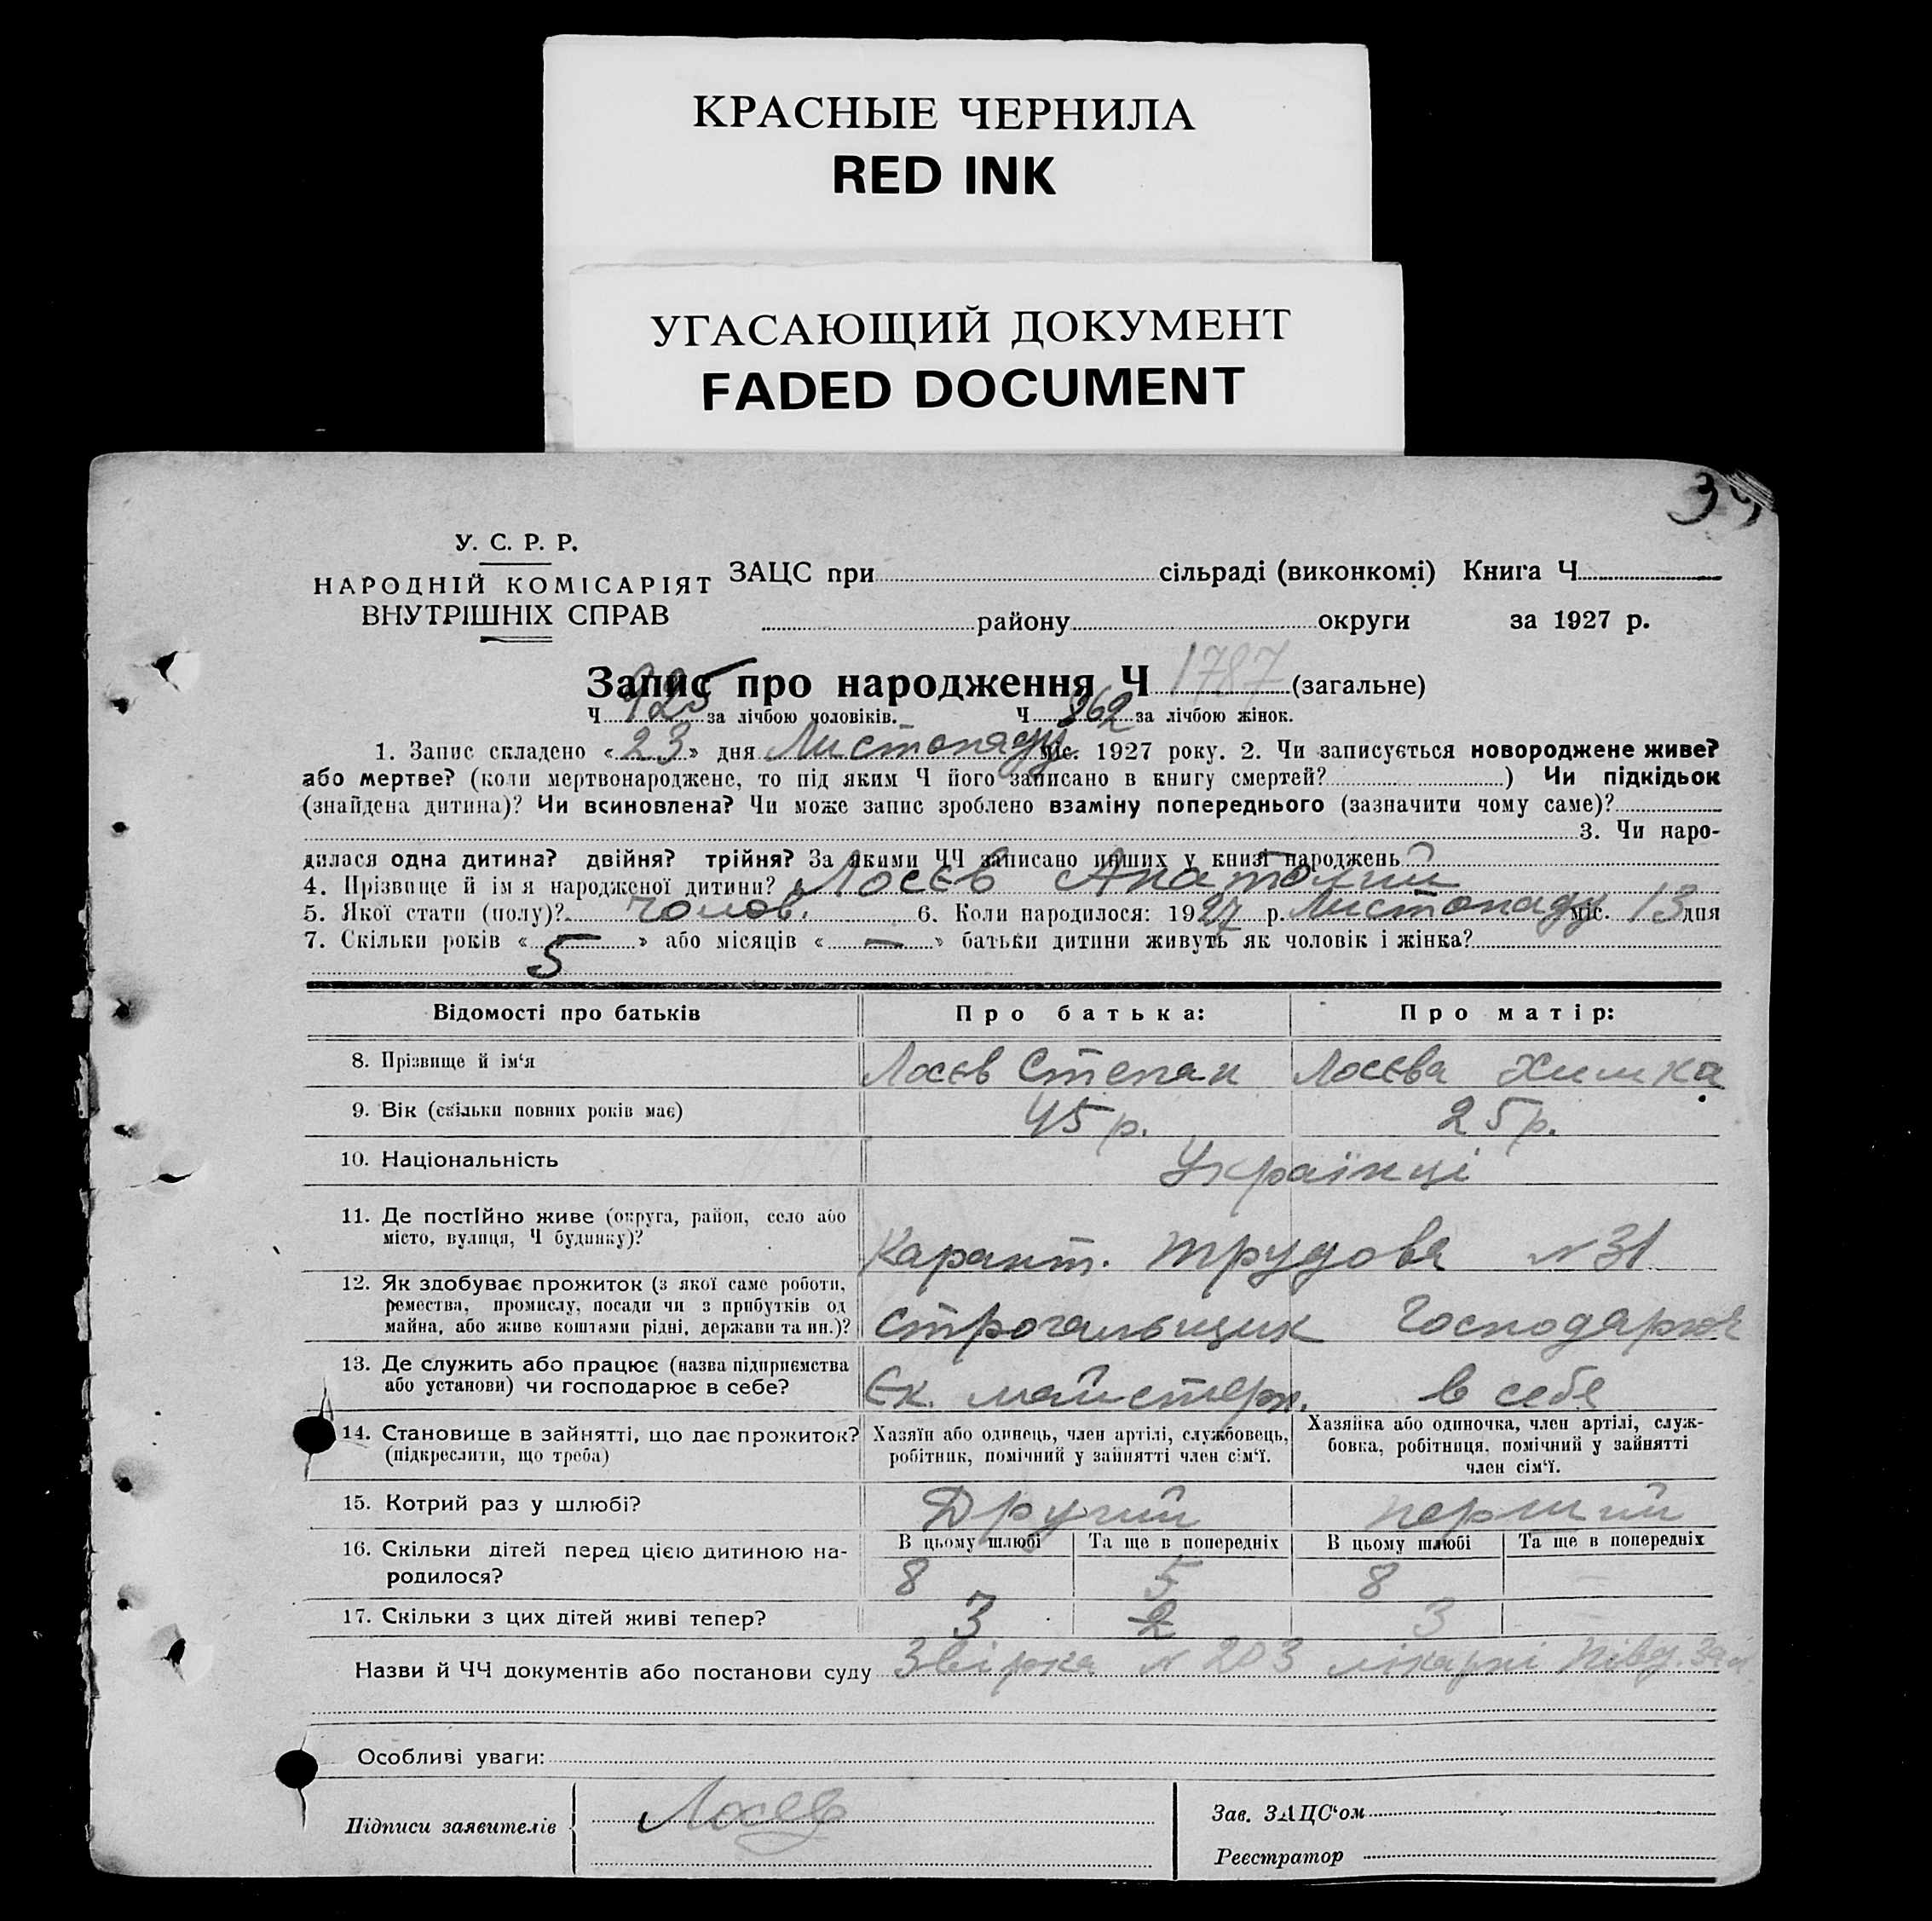 КРАСНЫЕ ЧЕРНИЛА
RED INK
УГАСАЮЩИЙ ДОКУМЕНТ
FADED DOCUMENT
У. С. Р. Р.
НАРОДНІЙ КОМІСАРІЯТ
ВНУТРІШНІХ СПРАВ
ЗАЦС при сільраді (виконкомі) Книга Ч
району округи за 1927 р.
Запис про народження Ч 1787 (загальне)
Ч 925 за лічбою чоловіків. Ч 862 за лічбою жінок.
1. Запис складено «23» дня Листопаду міс. 1927 року. 2. Чи записується новороджене живе?
або мертве? (коли мертвонароджене, то під яким Ч його записано в книгу смертей? ) Чи підкідьок
(знайдена дитина)? Чи всиновлена? Чи може запис зроблено взаміну попереднього (зазначити чому саме)?
3. Чи наро-
дилася одна дитина? двійня? трійня? За якими ЧЧ записано инших у книзі народжень
4. Прізвище й ім'я народженої дитини? Лосєв Анатолий
5. Якої стати (полу)? чолов. 6. Коли народилося: 1927 р. Листопаду міс. 13 дня
7. Скільки років « » або місяців « — » батьки дитини живуть як чоловік і жінка?
5
Відомості про батьків Про батька: Про матір:
8. Прізвище й ім'я Лосєв Степан Лосєва Химка
9. Вік (скільки повних років має) 45 р. 25 р.
10. Національність Українці
11. Де постійно живе (округа, район, село або
місто, вулиця, Ч будинку)? Карант. Трудова № 31
12. Як здобуває прожиток (з якої саме роботи,
ремества, промислу, посади чи з прибутків од
майна, або живе коштами рідні, держави та ин.)? Строгальщик Господарює
13. Де служить або працює (назва підприємства
або установи) чи господарює в себе? Єк. майстерн. в себе
14. Становище в зайнятті, що дає прожиток?
(підкреслити, що треба)
Хазяїн або одинець, член артілі, службовець,
робітник, помічний у зайнятті член сім'ї.
Хазяйка або одиночка, член артілі, служ-
бовка, робітниця, помічний у зайнятті
член сім'ї.
15. Котрий раз у шлюбі? Другий перший
16. Скільки дітей перед цією дитиною на-
родилося?
В цьому шлюбі Та ще в попередніх В цьому шлюбі Та ще в попередніх
8 5 8 —
17. Скільки з цих дітей живі тепер? 3 2 3 —
Назви й ЧЧ документів або постанови суду Звірка № 203 лікарні Півд. Зал
Особливі уваги:
Підписи заявителів Лосев
Зав. ЗАЦС'ом
Реєстратор